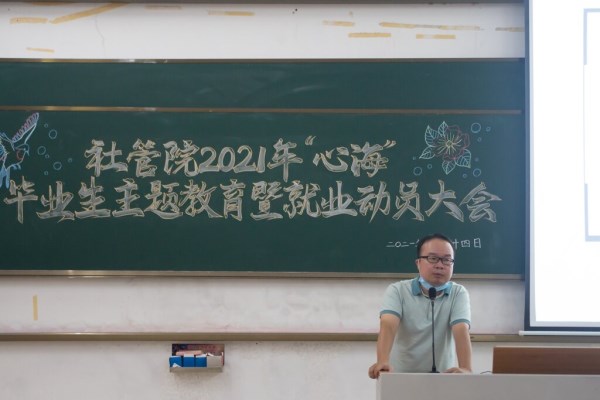 社管院2021年“心海”
毕业生主题教育暨就业动员大会
二〇二一 十四日